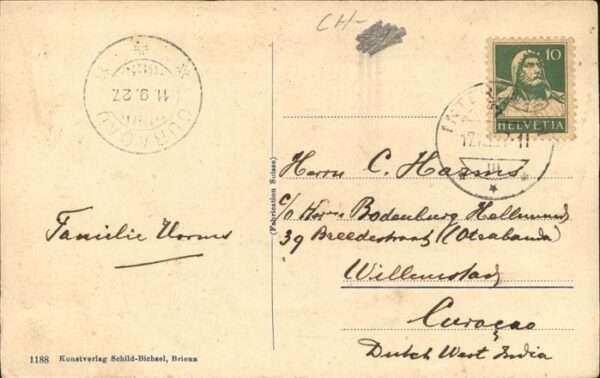 CH-
CURAÇAO
11.9.27
10
HELVETIA
INTER
III
Herrn C. Harms
c/o Herrn Bodenburg Hellmund
39 Breedestraat (Otrabanda)
Willemstad
Curaçao
Dutch West India
Familie
(Fabrication Suisse)
1188 Kunstverlag Schild-Bichsel, Brienz